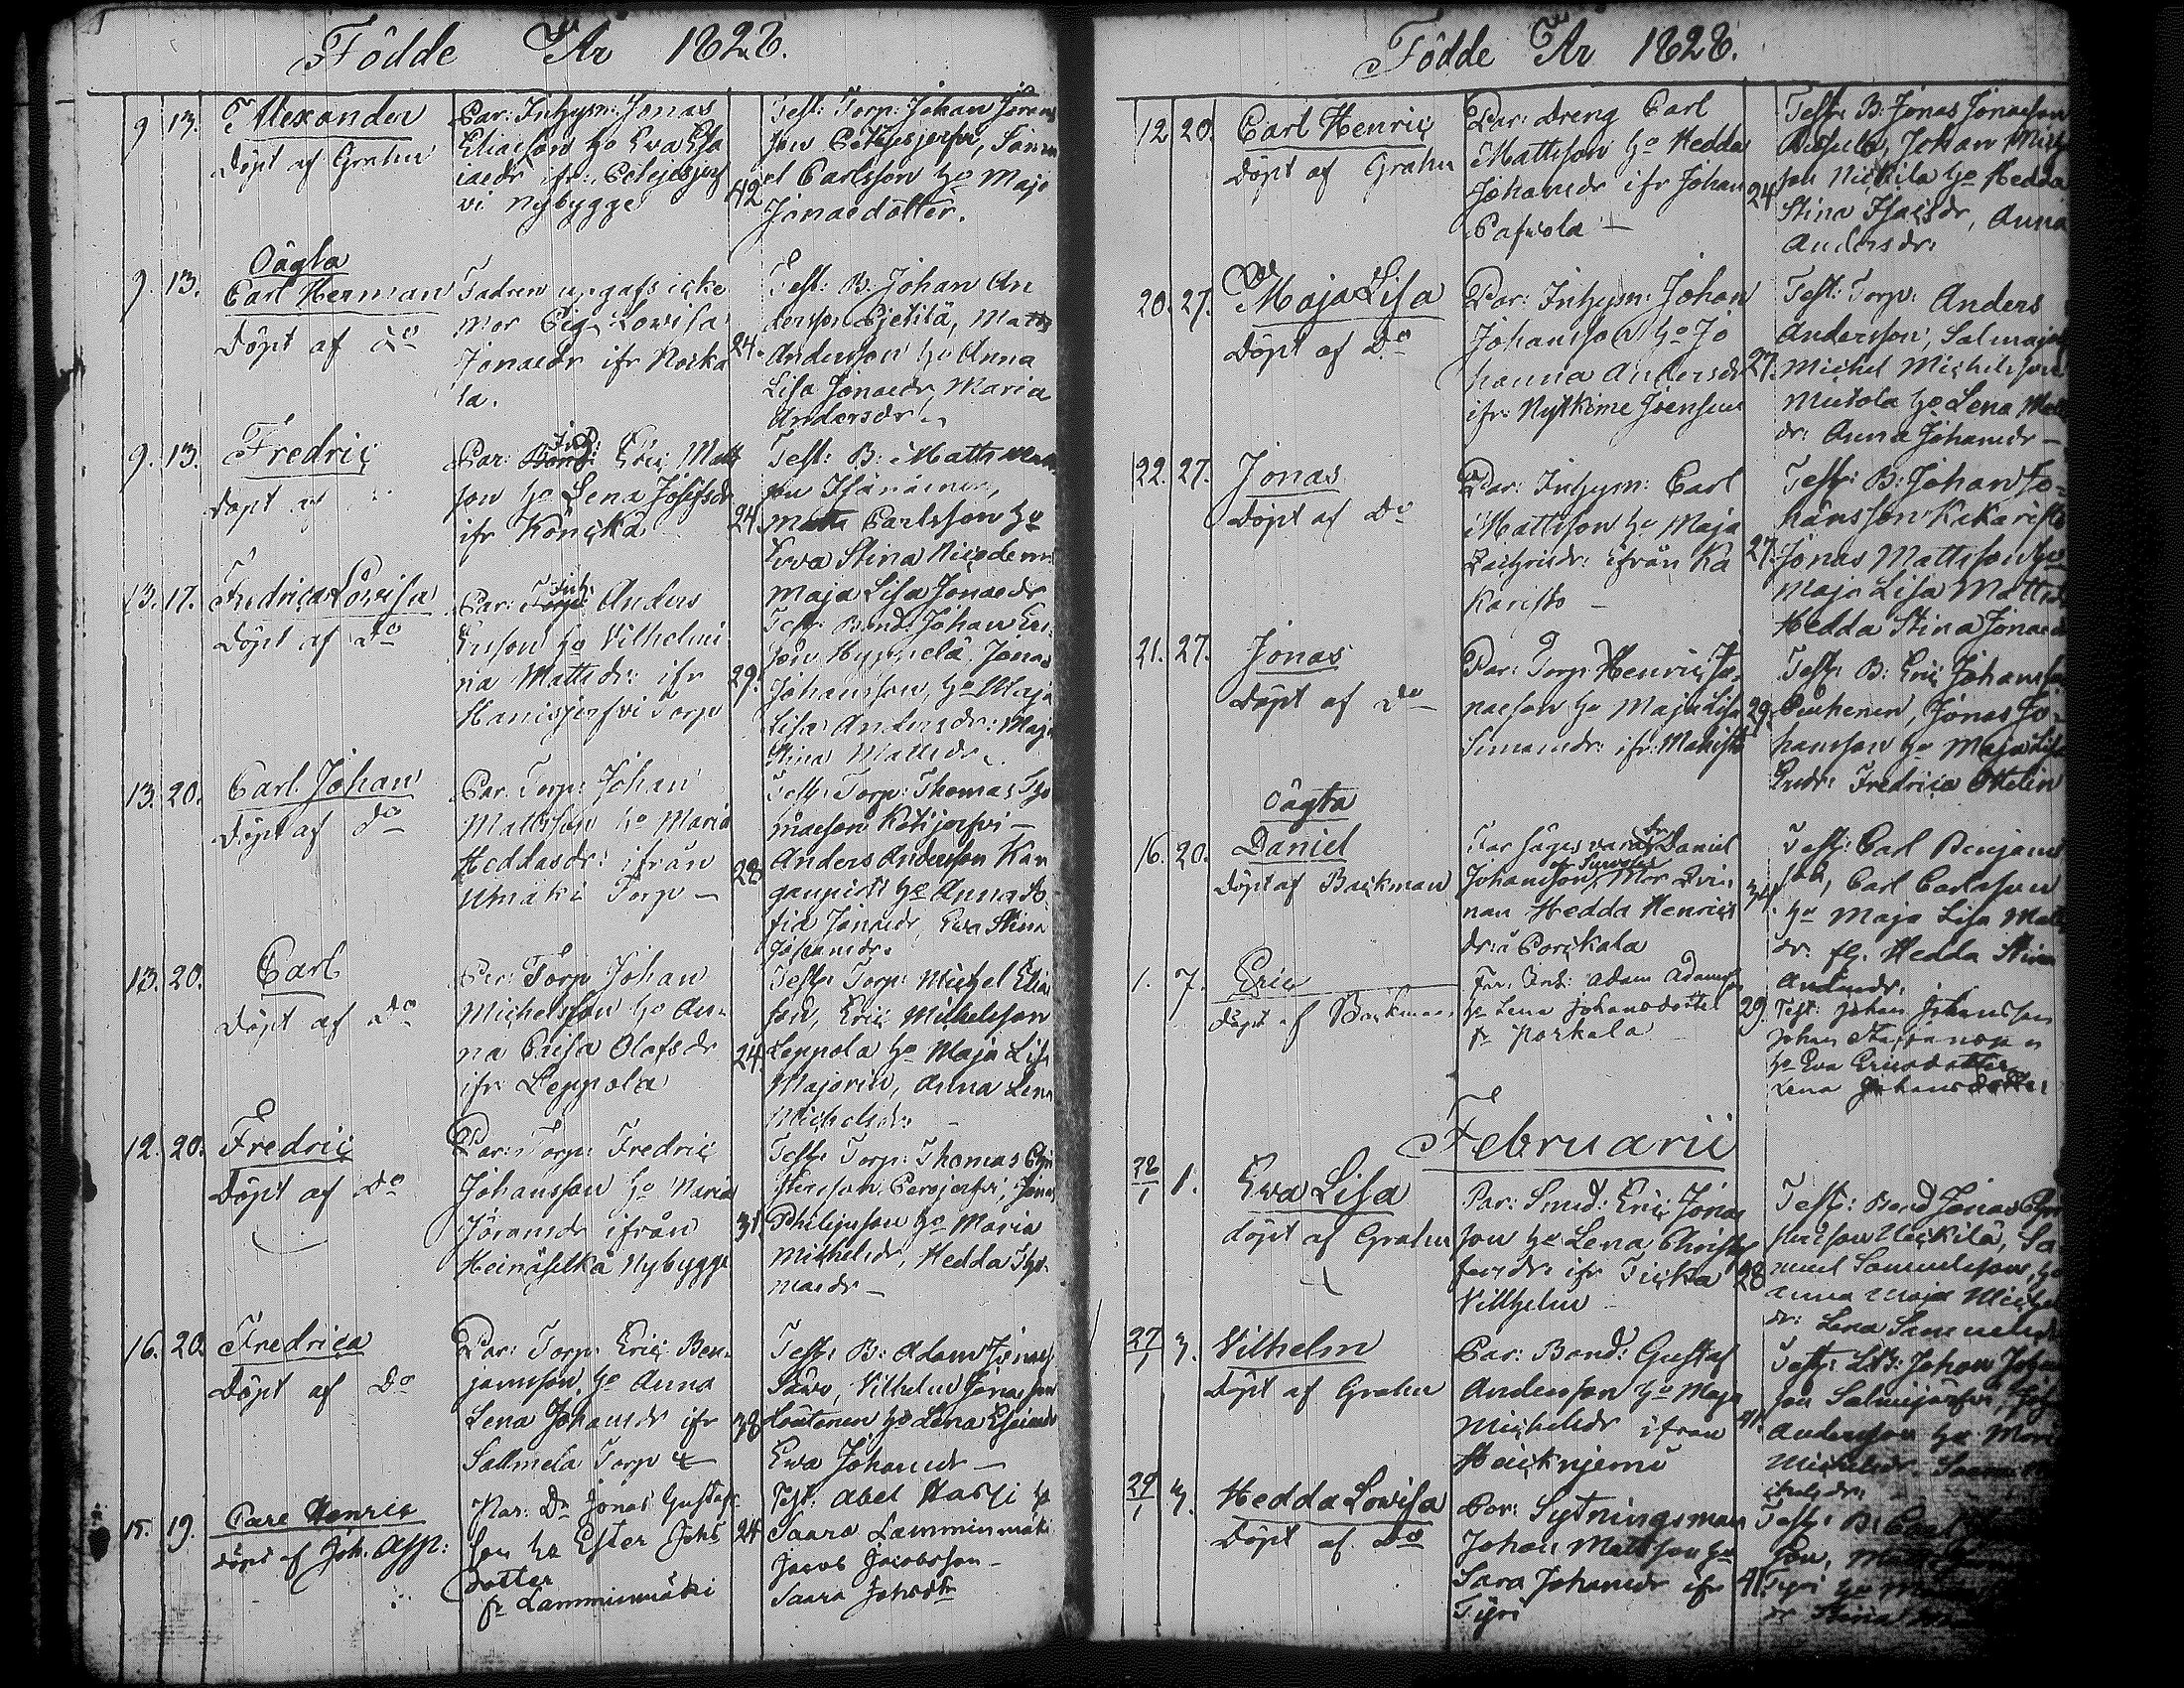 Födde År 1828.
9 13. Alexander
Döpt af Grahn
Par: Inhysm: Jonas
Eliasson ho Eva Esa
iaedr ifr: Petejesjerf
vi Nybygge
42
Test: Torp: Johan Jörans
son Petejesjerfvi, Samu
el Carlsson ho Maja
Jonaedotter.
9. 13. Oägta
Carl Herman
Döpt af do
Fadren upgafs icke
Mor Pig. Lowisa
Jonaedr ifr Koska
la.
24.
Test: B. Johan An
dersson Pjetilä, Matts
Andersson ho Anna
Lisa Jonaedr, Maria
Andersdr
9. 13. Fredric
Döpt af
Par: Bond: Eric Matts
son ho Lena Josefsdr
ifr Köncka
24.
Test: B: Matts
son
Matts Carlsson ho
Evva Stina Nicodemi
Maja Lisa Jonaedr
13. 17. Fredrica Lovisa
Döpt af Do
Par: Torp: Inh: Anders
Ersson ho Vilhelmi
na Mattsdr: ifr
Hanisjerfvi Torp
29.
Test: Bond: Johan Eri
son Hyppelä, Jonas
Johansson, ho Maja
Lisa Andersdr: Maja
Stina Mattsdr.
13. 20. Carl Johan
Döpt af do
Par: Torp: Johan
Mattsson ho Maria
Heddasdr: ifrån
Utmäki Torp —
28
Test: Torp: Thomas Tho
maeson Kotijerfvi —
Anders Andersson Kan
ganpists ho Anna So
fia Jonaedr, Eva Stina
Johansdr.
13. 20. Carl
Döpt af Do
Par: Torp Johan
Michelsson ho An
na Caisa Olofsdr
ifr: Leppola
24.
Test: Torp: Michel Elia
son, Eric Michelsson
Leppola ho Maja Lisa
Majorin, Anna Lena
Michelsdr
12. 20. Fredric
Döpt af Do
Par: Torp: Fredric
Johansson ho Maria
Jöransdr ifrån
Heinäselkä Nybygge
31.
Test: Torp: Thomas Chri
stersson Perojerfvi, Jonas
Philipsson ho Maria
Michelsdr, Hedda Tho
maedr —
16. 20. Fredrica
Döpt af Do
Par: Torp: Eric Ben
jamsson, ho Anna
Lena Johansdr ifr
Sallmela Torp
38
Test: B: Adam Jonaes
Sawo, Vilhelm Jonaesson
Loutenen ho Lena Esaiaedr
Eva Johansdr —
15. 19. Carl Henric
döpt af Joh. Assp:
Par: Dr Jonas Gustafs
son ho Ester Johs
dotter
fr Lamminmäki
24
Test: Abel Harji ho
Saara Lamminmäki
Jacob Jacobsson —
Saara Johsdtr
Födde År 1828.
12 20. Carl Henric
Döpt af Grahn
Par: Dreng Carl
Mattsson ho Hedda
Johansdr ifr Johan
Pafvola —
24
Test: B: Jonas Jonaeson
Johan Mich
son Nickila ho Hedda
Stina Isacsdr, Anna
Andersdr:
20. 27. Maja Lisa
Döpt af Do
Par: Inhysm: Johan
Johansson ho Jo
hanna Andersdr
ifr: Nytkime Joensuu
27.
Test: Torp: Anders
Andersson, Salmajer
Michel Michelsson
Mietola ho Lena Matts
dr: Anna Johansdr —
22. 27. Jonas
Döpt af Do
Par: Inhysm: Carl
Mattsson ho Maja
Zachrisdr: ifrån Ka
karisto —
27.
Test: B: Johan Jo
hansson Kakaristo
Jonas Mattsson ho
Maja Lisa Mattsdr
Hedda Stina Jonaedr
21. 27. Jonas
Döpt af Do
Par: Torp: Henric Jo
naeson ho Maja Lisa
Simonsdr: ifr: Mahisto
29.
Test: B: Eric Johansson
Penhenen, Jonas Jo
hansson ho Maja Lisa
Ersdr: Fredrica Ottelin
Oägta
16. 20. Daniel
Döpt af Backman
Far säges vara dr. Daniel
Johansson, Mor Qvin
nan Hedda Henrics
dr: i Porckala
34
Test: Carl Benjams
son, Carl Carlsson
ho Maja Lisa Matts
dr. fl. Hedda Stina
Andersdr.
1. 7. Eric
döpt af Backman
Par: Ind: Adam Adamss
ho Lena Johansdotter
fr Porkala
29.
Test: Johan Johansson
Johan
ho Eva Ericsdotter
Lena Johansdotter
Februarii
28/1 1. Eva Lisa
döpt af Grahn
Par: Smed: Eric Jonae
son ho Lena Christof
fersdr: ifr Ticka
Villhelm
28
Test: Bond Jonas Chri
sterson Uckilä, Sa
muel Samuelsson, ho
Anna Maja Michel
dr: Lena Samuelsdr
27/1 3. Vilhelm
Döpt af Grahn
Par: Bond: Gustaf
Andersson ho Maja
Michelsdr ifrån
Haickniemi
41.
Test: LB: Johan Johans
son Salmijärfvi, Joh
Andersson ho Mari
Michelsdr.
29/1 3. Hedda Lowisa
Döpt af Do
Par: Sytningsman
Johan Mattsson ho
Sara Johansdr ifr
Tyri
41.
Test: B: Carl
son,
Tyri ho
dr Stina